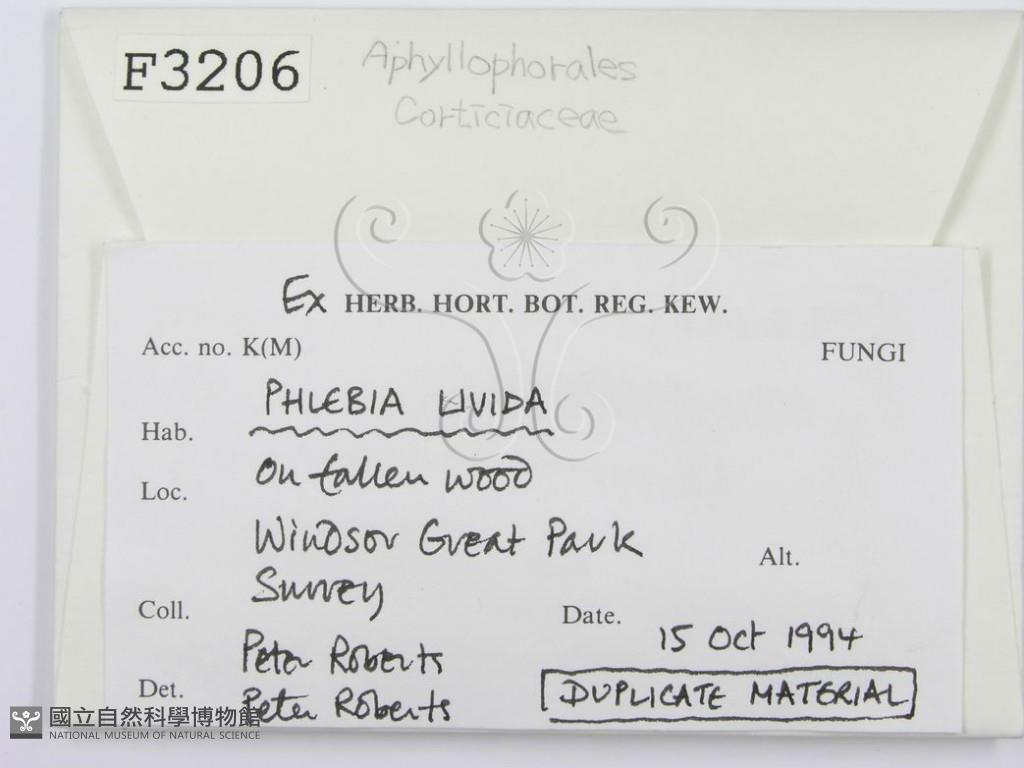 F3206
Aphyllophorales
Corticiaceae
Ex HERB. HORT. BOT. REG. KEW.
Acc. no. K(M)
FUNGI
PHLEBIA LIVIDA
Hab.
On fallen wood
Loc.
Windsor Great Park
Alt.
Surrey
Coll.
Date.
15 Oct 1994
Peter Roberts
Det.
Peter Roberts
DUPLICATE MATERIAL
國立自然科學博物館
NATIONAL MUSEUM OF NATURAL SCIENCE